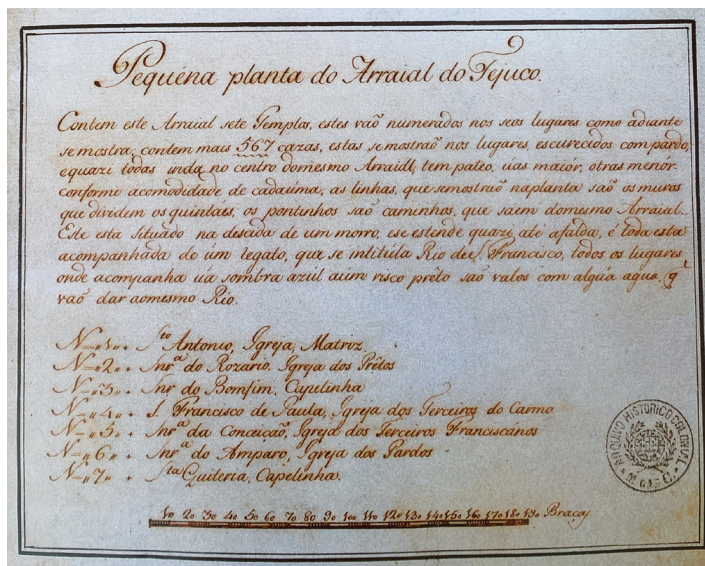 Pequéna planta do Arraial do Tejuco.
Contem este Arraial sete Templos, estes vaõ numerados nos seos lugares como adiante
se mostra; contem mais 567 cazas, estas se mostraõ nos lugares, escurecidos com pardo,
equazi todas inda no centro domesmo Arraial, tem pateo, úas maiór, otras menór
conforme acomodidade de cadauma, as linhas, que semostraõ naplanta saõ os muros
que dividem os quintaes, os pontinhos saõ caminhos, que saem domesmo Arraial.
Este esta situado na descida de um morro, ese estende quazi até afalda, é toda esta
acompanhada de úm regato, que se intitúla Rio de S. Francisco, todos os lugares
onde acompanha úa sombra azúl aúm risco prêto saõ valos com algúa agua, q
vaõ dar aomesmo Rio.
N=1 Sto Antonio, Igreja Matriz
N=2 Snra do Rozario, Igreja dos Prêtos
N=3 Snr do Bomfim, Capelinha
N=4 S. Francisco de Paula, Igreja dos Terceiros do Carmo
N=5 Snra da Conceicaõ, Igreja dos Terceiros Franciscanos
N=6 Snra do Amparo, Igreja dos Pardos
N=7 Sta Quiteria, Capelinha.
ARQUIVO HISTORICO COLONIAL
10 20 30 40 50 60 70 80 90 100 110 120 130 140 150 160 170 180 190 Braças